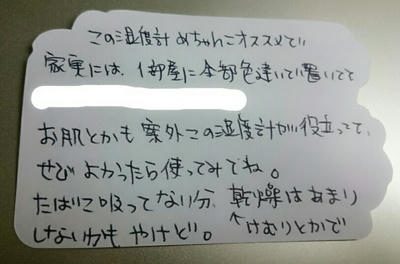 この湿度計めちゃんこオススメで!!
家実には、1部屋に全部色違いで置いてて
お肌とかも案外この湿度計が役立ってて、
ぜひよかったら使ってみてね。
たばこ吸ってない分、乾燥はあまり
しないかもやけど。 ↑けむりとかで